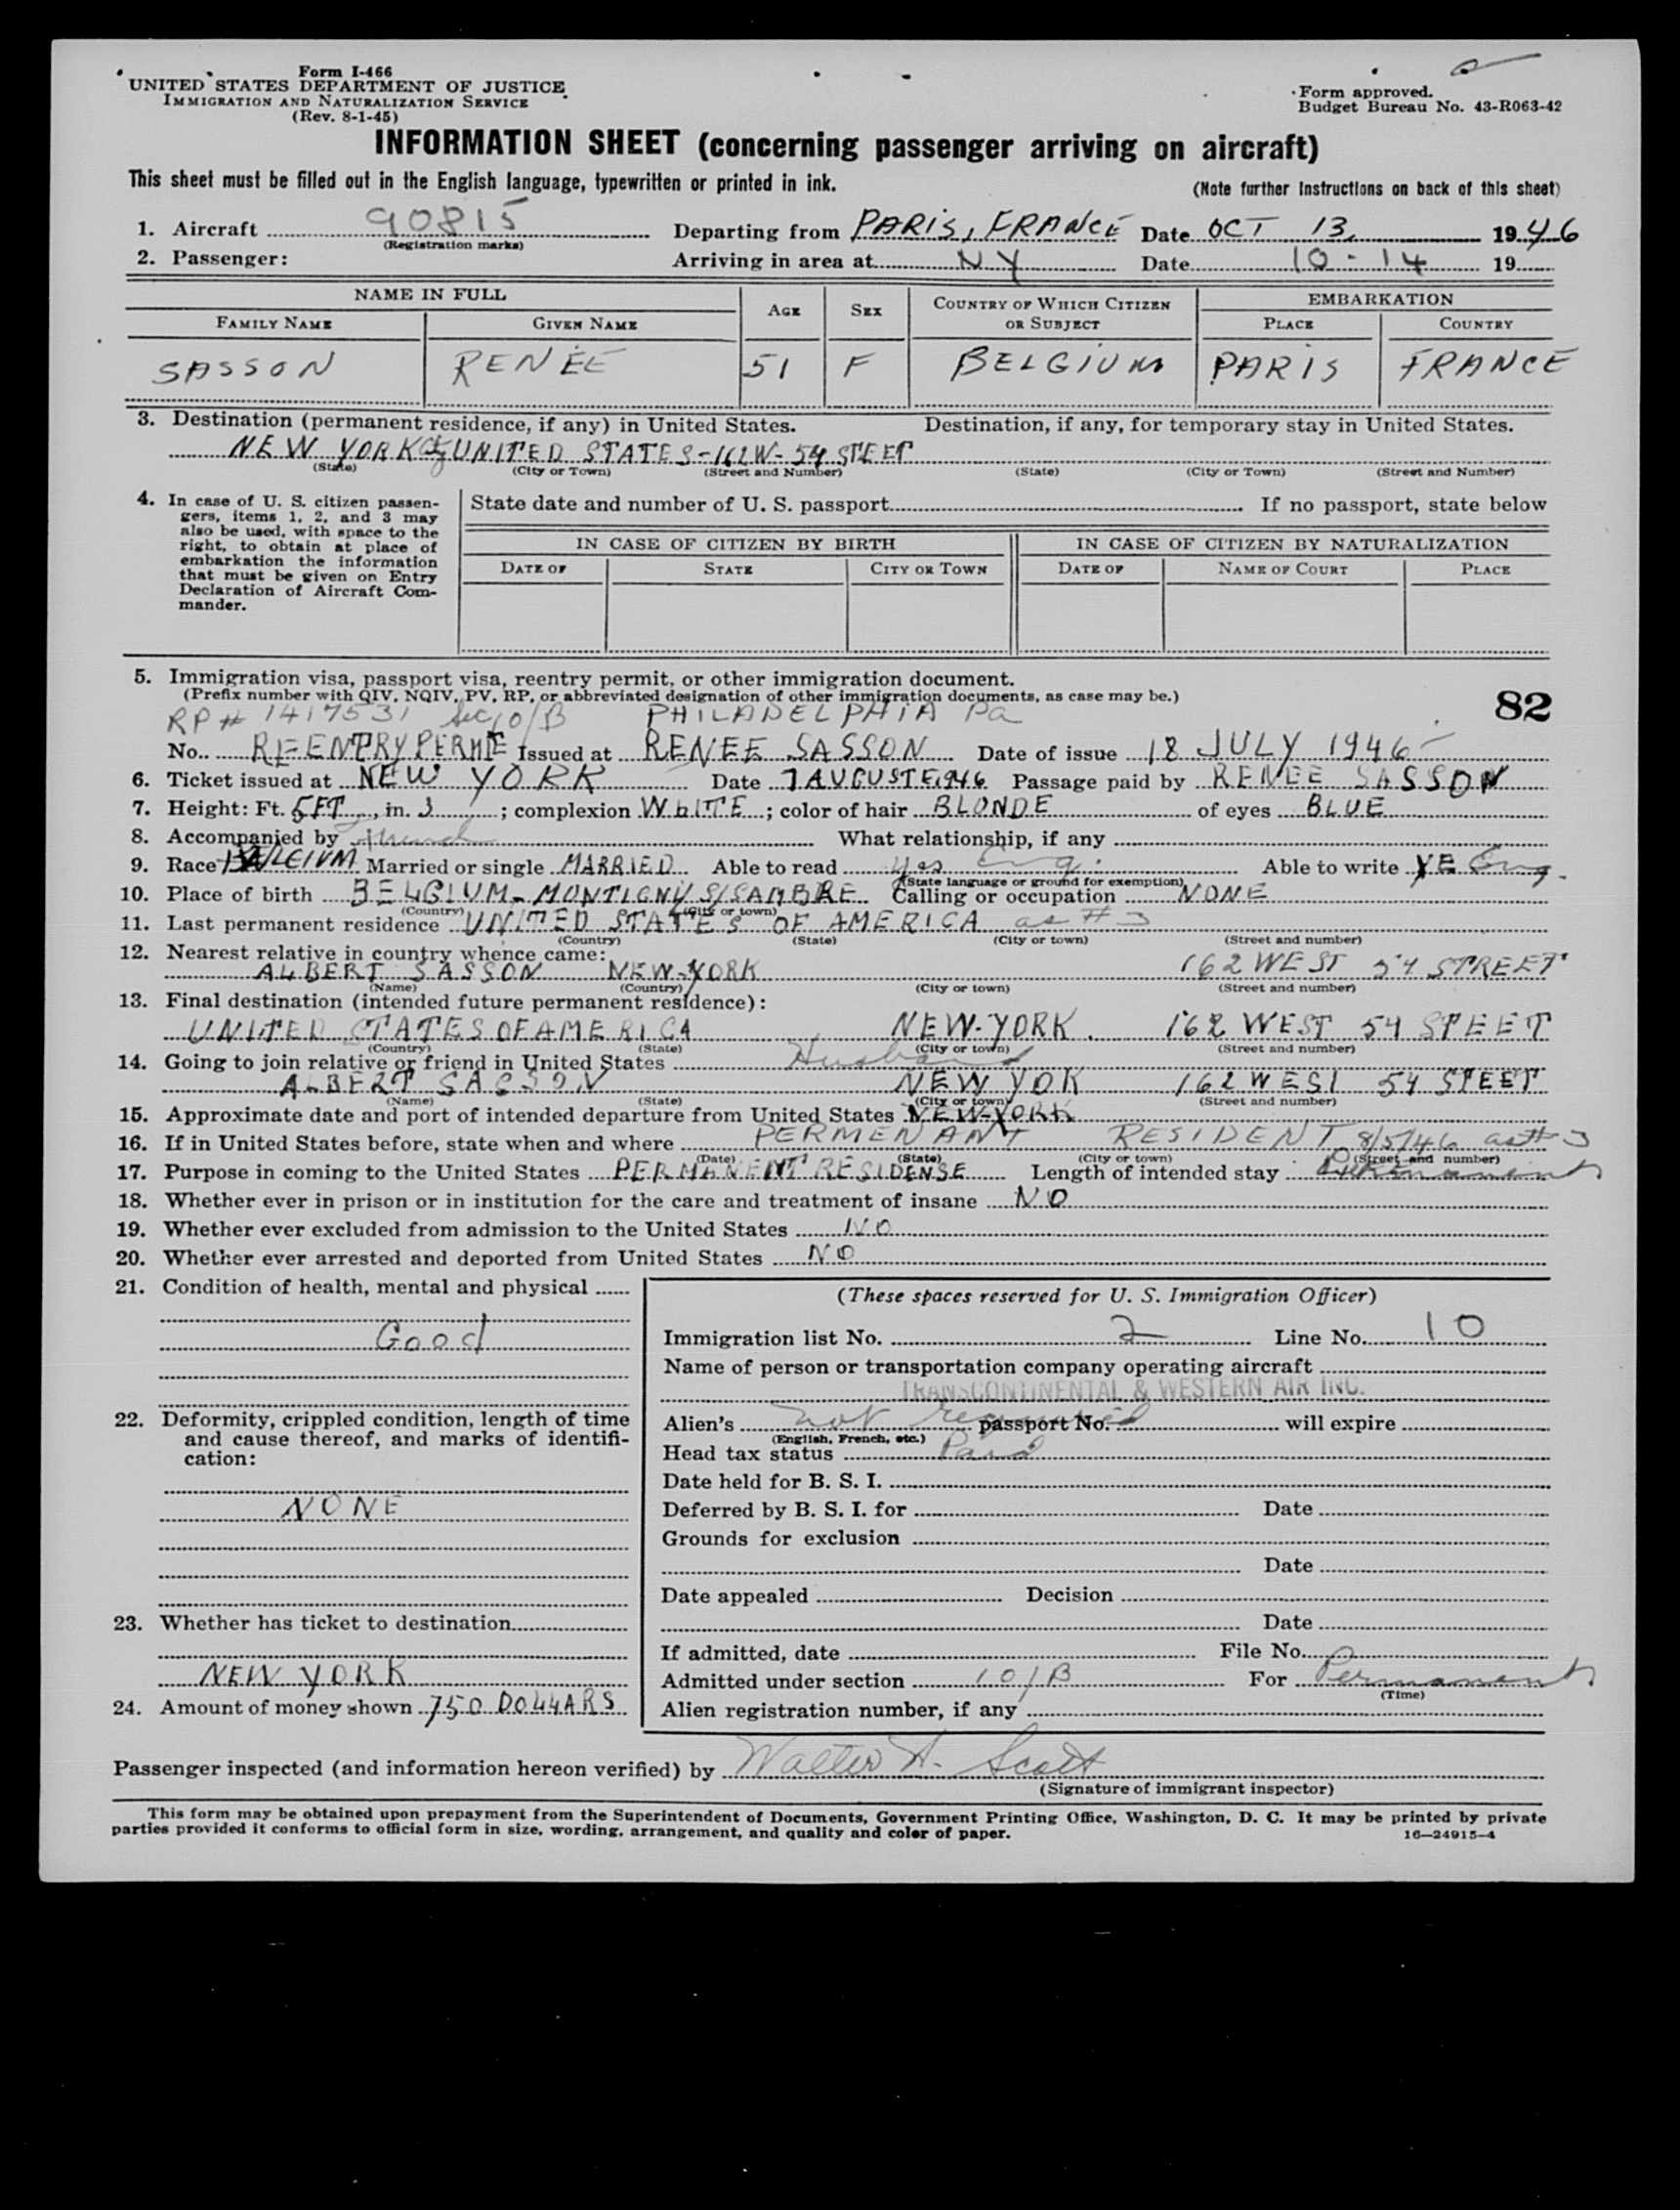 Form I-466
UNITED STATES DEPARTMENT OF JUSTICE
IMMIGRATION AND NATURALIZATION SERVICE
(Rev. 8-1-45)
Form approved.
Budget Bureau No. 43-R063-42
INFORMATION SHEET (concerning passenger arriving on aircraft)
This sheet must be filled out in the English language, typewritten or printed in ink. (Note further instructions on back of this sheet)
1. Aircraft 90815 Departing from PARIS, FRANCE Date OCT 13, 1946
(Registration marks)
2. Passenger: Arriving in area at NY Date 10-14 19
NAME IN FULL AGE SEX COUNTRY OF WHICH CITIZEN OR SUBJECT EMBARKATION
FAMILY NAME GIVEN NAME PLACE COUNTRY
SASSON RENÉE 51 F BELGIUM PARIS FRANCE
3. Destination (permanent residence, if any) in United States. Destination, if any, for temporary stay in United States.
NEW YORK UNITED STATES-162W-54 STEET
(State) (City or Town) (Street and Number) (State) (City or Town) (Street and Number)
4. In case of U. S. citizen passengers, items 1, 2, and 3 may also be used, with space to the right, to obtain at place of embarkation the information that must be given on Entry Declaration of Aircraft Commander.
State date and number of U. S. passport If no passport, state below
IN CASE OF CITIZEN BY BIRTH IN CASE OF CITIZEN BY NATURALIZATION
DATE OF STATE CITY OR TOWN DATE OF NAME OF COURT PLACE
5. Immigration visa, passport visa, reentry permit, or other immigration document.
(Prefix number with QIV, NQIV, PV, RP, or abbreviated designation of other immigration documents, as case may be.)
82
RP# 1417531 Sec 10/B PHILADELPHIA Pa
No. REENTRY PERMIT Issued at RENEE SASSON Date of issue 18 JULY 1946
6. Ticket issued at NEW YORK Date 7 AUGUSTE 1946 Passage paid by RENEE SASSON
7. Height: Ft. 5FT, in. 3; complexion WHITE; color of hair BLONDE of eyes BLUE
8. Accompanied by What relationship, if any
9. Race BELGIUM Married or single MARRIED Able to read yes Eng. Able to write YE Eng.
(State language or ground for exemption)
10. Place of birth BELGIUM-MONTIGNY S/SAMBRE Calling or occupation NONE
(Country) (City or town)
11. Last permanent residence UNITED STATES OF AMERICA as # 3
(Country) (State) (City or town) (Street and number)
12. Nearest relative in country whence came:
ALBERT SASSON NEW-YORK 162 WEST 54 STREET
(Name) (Country) (City or town) (Street and number)
13. Final destination (intended future permanent residence):
UNITED STATES OF AMERICA NEW-YORK. 162 WEST 54 STEET
(Country) (State) (City or town) (Street and number)
14. Going to join relative or friend in United States Husband
ALBERT SASSON NEW YOK 162 WEST 54 STEET
(Name) (State) (City or town) (Street and number)
15. Approximate date and port of intended departure from United States NEW-YORK
16. If in United States before, state when and where PERMENANT RESIDENT 8/5/46 as # 3
(Date) (State) (City or town) (Street and number)
17. Purpose in coming to the United States PERMANENT RESIDENSE Length of intended stay
18. Whether ever in prison or in institution for the care and treatment of insane NO
19. Whether ever excluded from admission to the United States NO
20. Whether ever arrested and deported from United States NO
21. Condition of health, mental and physical
Good
22. Deformity, crippled condition, length of time and cause thereof, and marks of identification:
NONE
23. Whether has ticket to destination
NEW YORK
24. Amount of money shown 750 DOLLARS
(These spaces reserved for U. S. Immigration Officer)
Immigration list No. 2 Line No. 10
Name of person or transportation company operating aircraft
TRANSCONTINENTAL & WESTERN AIR INC.
Alien's not required passport No. will expire
(English, French, etc.)
Head tax status Paid
Date held for B. S. I.
Deferred by B. S. I. for Date
Grounds for exclusion
Date
Date appealed Decision
Date
If admitted, date File No.
Admitted under section 10/B For Permanent
(Time)
Alien registration number, if any
Passenger inspected (and information hereon verified) by Walter A. Scott
(Signature of immigrant inspector)
This form may be obtained upon prepayment from the Superintendent of Documents, Government Printing Office, Washington, D. C. It may be printed by private
parties provided it conforms to official form in size, wording, arrangement, and quality and color of paper. 16—24915-4